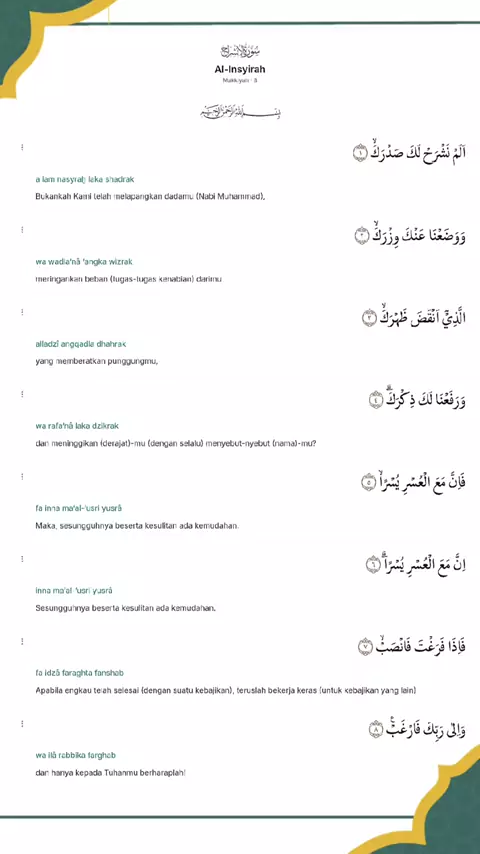 سُوْرَةُ الْاِنْشِرَاحِ
Al-Insyirah
Makkiyah · 8
بِسْمِ اللّٰهِ الرَّحْمٰنِ الرَّحِيْمِ
اَلَمْ نَشْرَحْ لَكَ صَدْرَكَۙ ١
a lam nasyraḫ laka shadrak
Bukankah Kami telah melapangkan dadamu (Nabi Muhammad),
وَوَضَعْنَا عَنْكَ وِزْرَكَۙ ٢
wa wadla'nâ 'angka wizrak
meringankan beban (tugas-tugas kenabian) darimu
الَّذِيْٓ اَنْقَضَ ظَهْرَكَۙ ٣
alladzî angqadla dhahrak
yang memberatkan punggungmu,
وَرَفَعْنَا لَكَ ذِكْرَكَۗ ٤
wa rafa'nâ laka dzikrak
dan meninggikan (derajat)-mu (dengan selalu) menyebut-nyebut (nama)-mu?
فَاِنَّ مَعَ الْعُسْرِ يُسْرًاۙ ٥
fa inna ma'al-'usri yusrâ
Maka, sesungguhnya beserta kesulitan ada kemudahan.
اِنَّ مَعَ الْعُسْرِ يُسْرًاۗ ٦
inna ma'al-'usri yusrâ
Sesungguhnya beserta kesulitan ada kemudahan.
فَاِذَا فَرَغْتَ فَانْصَبْۙ ٧
fa idzâ faraghta fanshab
Apabila engkau telah selesai (dengan suatu kebajikan), teruslah bekerja keras (untuk kebajikan yang lain)
وَاِلٰى رَبِّكَ فَارْغَبْࣖ ٨
wa ilâ rabbika farghab
dan hanya kepada Tuhanmu berharaplah!